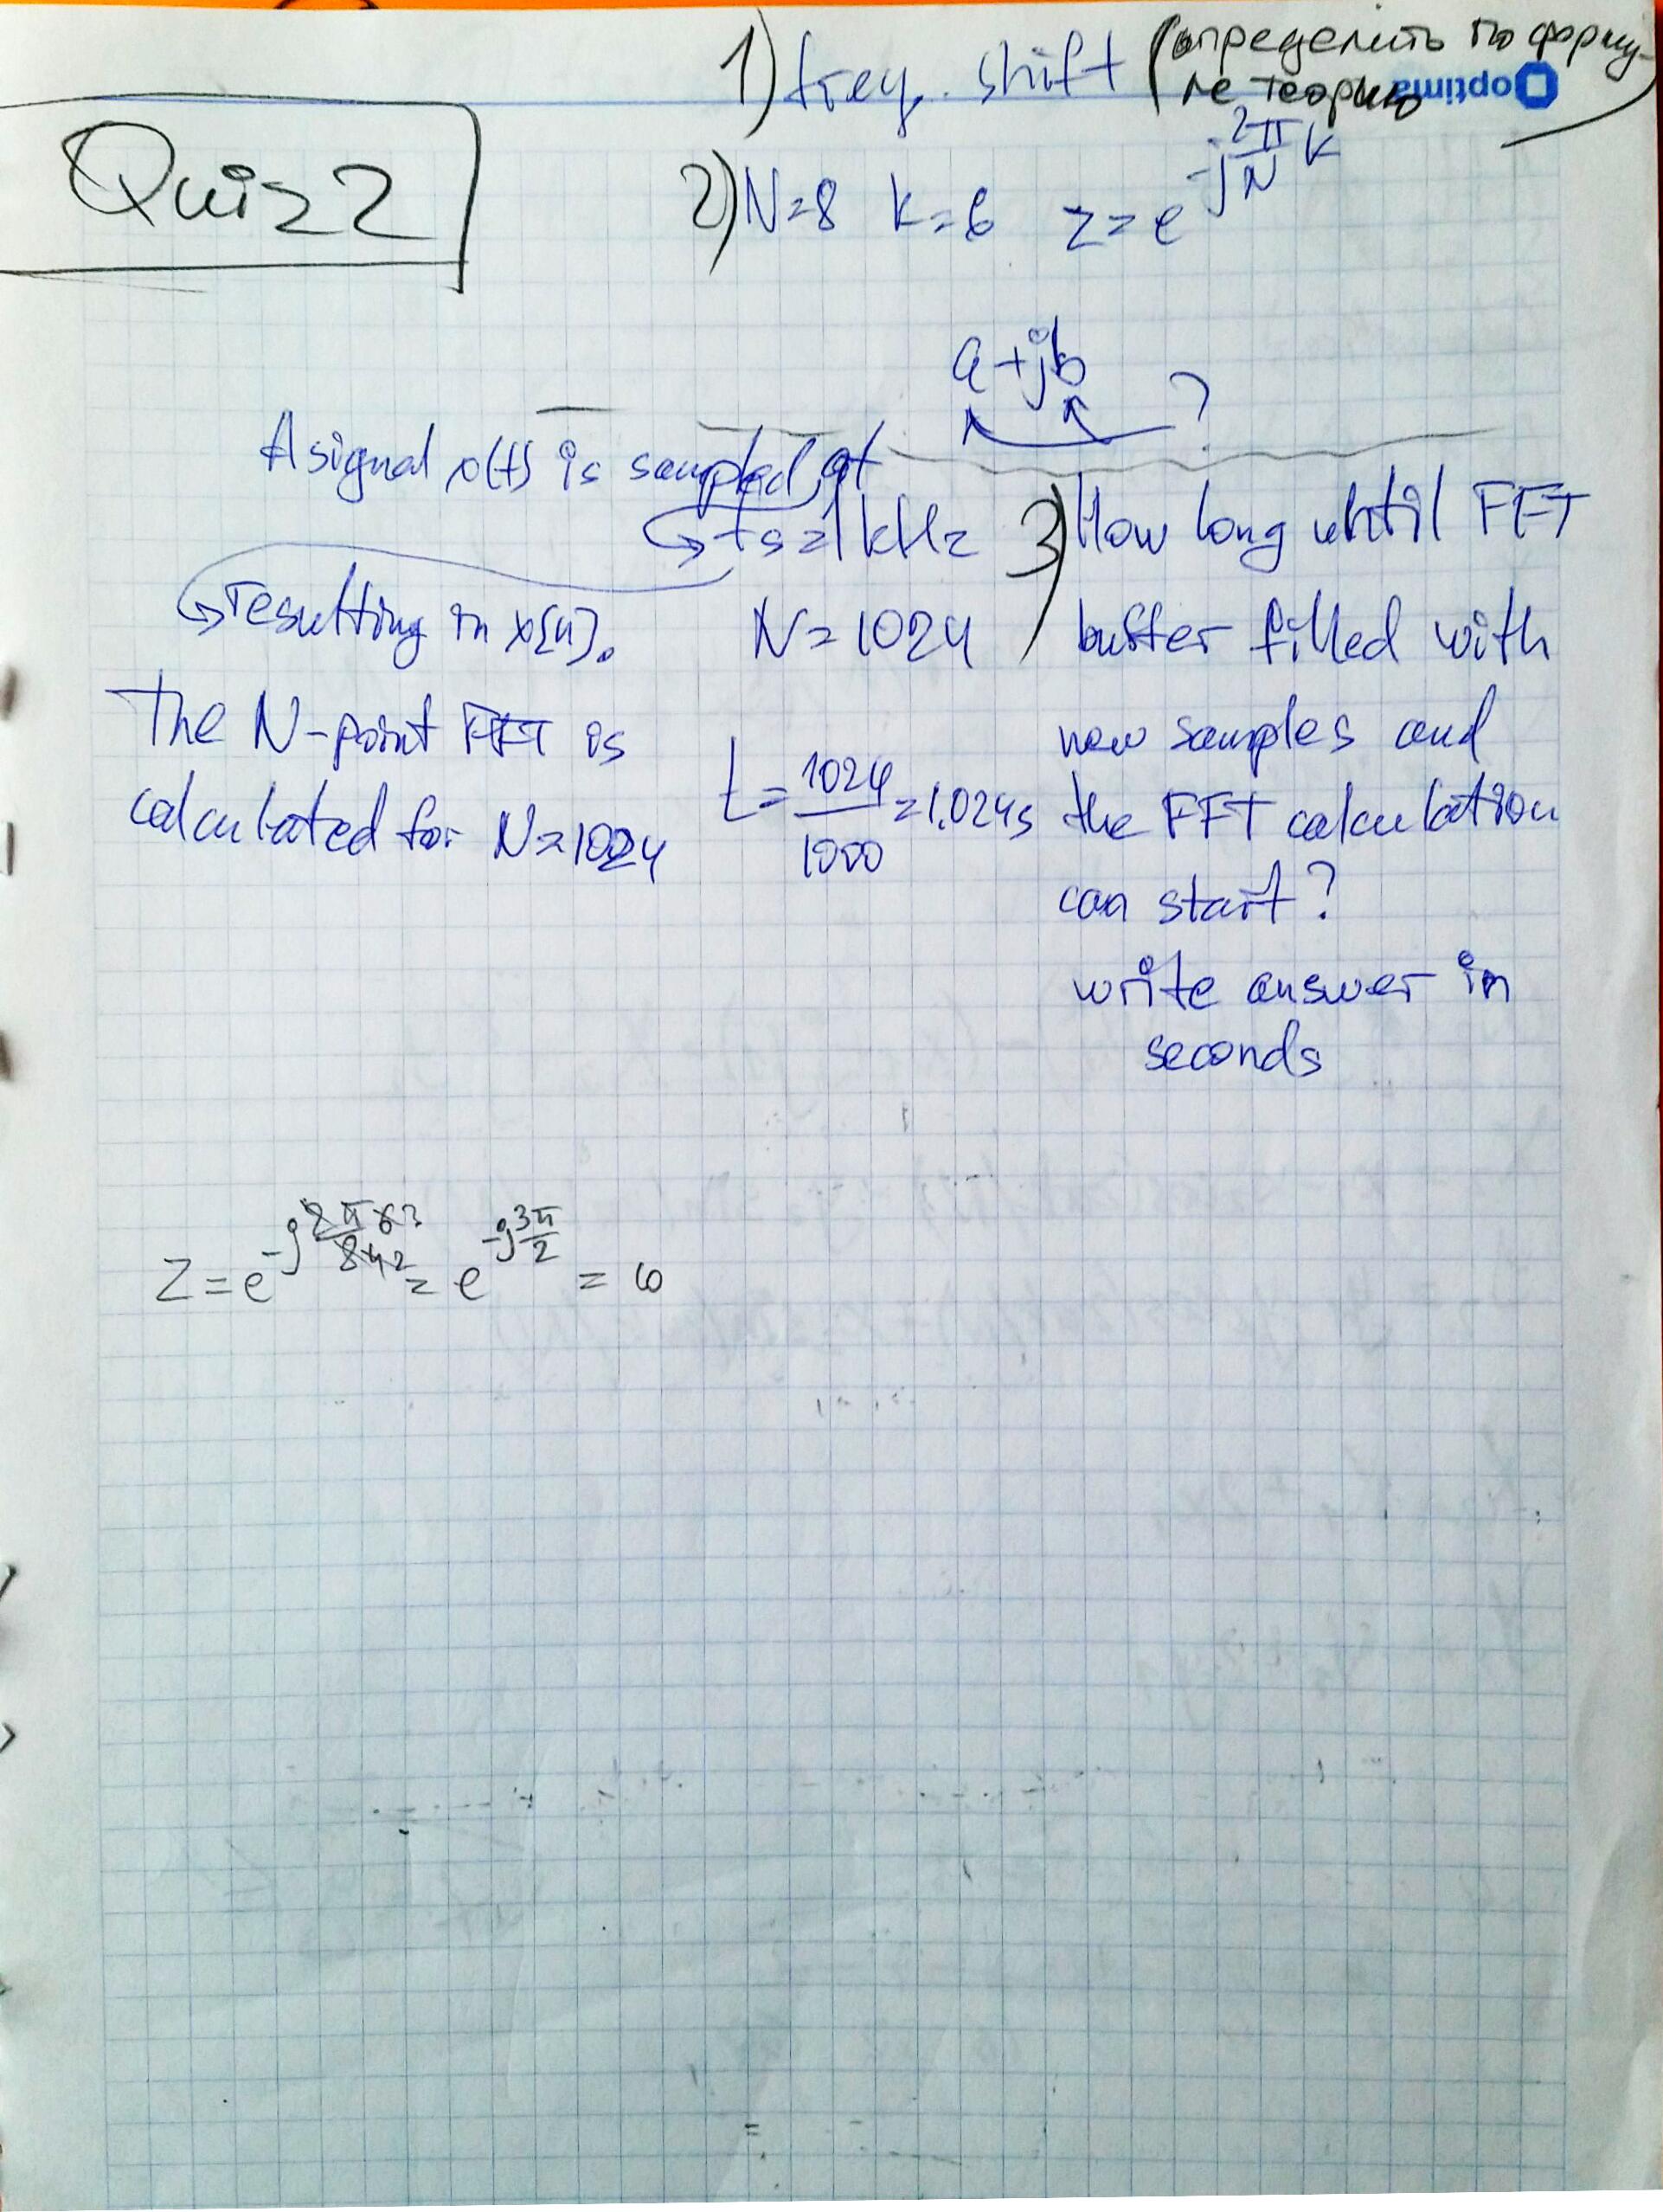 1) freq. shift (определить по форму-
ле теорию
optima
Quiz 2
2) N=8 k=6 z=e^{-j\frac{2π}{N}k}
a+jb
?
A signal x(t) is sampled at
fs=1kHz
resulting in x[n].
N=1024
The N-point FFT is
calculated for N=1024
t=\frac{1024}{1000}=1.024s
3) How long until FFT
buffer filled with
new samples and
the FFT calculation
can start?
write answer in
seconds
z=e^{-j\frac{2π63}{842}}=e^{-j\frac{3π}{2}}=